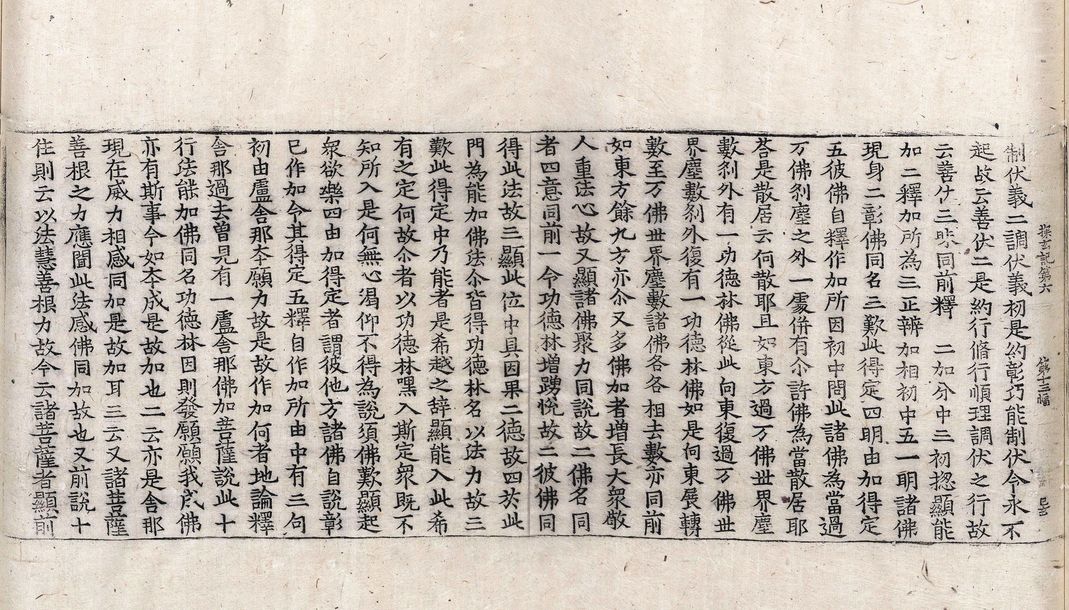 探玄記第六 第十三幅
制伏義二調伏義初是約彰巧能制伏令永不
起故云善伏二是約行脩行順理調伏之行故
云善伏三昧同前釋 二加分中三初揔顯能
加二釋加所為三正辨加相初中五一明諸佛
現身二彰佛同名三歎此得定四明由加得定
五彼佛自釋作加所因初中問此諸佛為當過
万佛刹塵之外一處併有尒許佛為當散居耶
荅是散居云何散耶且如東方過万佛世界塵
數刹外有一功德林佛從此向東復過万佛世
界塵數刹外復有一功德林佛如是向東展轉
數至万佛世界塵數諸佛各各相去數亦同前
如東方餘九方亦尒又多佛加者增長大衆敬
人重法心故又顯諸佛聚力同說故二佛名同
者四意同前一令功德林增踴悅故二彼佛同
得此法故三顯此位中具因果二德故四於此
門為能加佛法尒皆得功德林名以法力故三
歎此得定中乃能者是希越之辞顯能入此希
有之定何故尒者以功德林嘿入斯定衆既不
知所入是何無心渴仰不得為說須佛歎顯起
衆欲樂四由加得定者謂彼他方諸佛自說彰
已作加令其得定五釋自作加所由中有三句
初由盧舍那本願力故是故作加何者地論釋
舍那過去曾見有一盧舍那佛加菩薩說此十
行法能加佛同名功德林因則發願願我成佛
亦有斯事今如本成是故加也二云亦是舍那
現在威力相感同加是故加耳三云又諸菩薩
善根之力應聞此法感佛同加故也又前說十
住則云以法慧善根力故今云諸菩薩者顯前